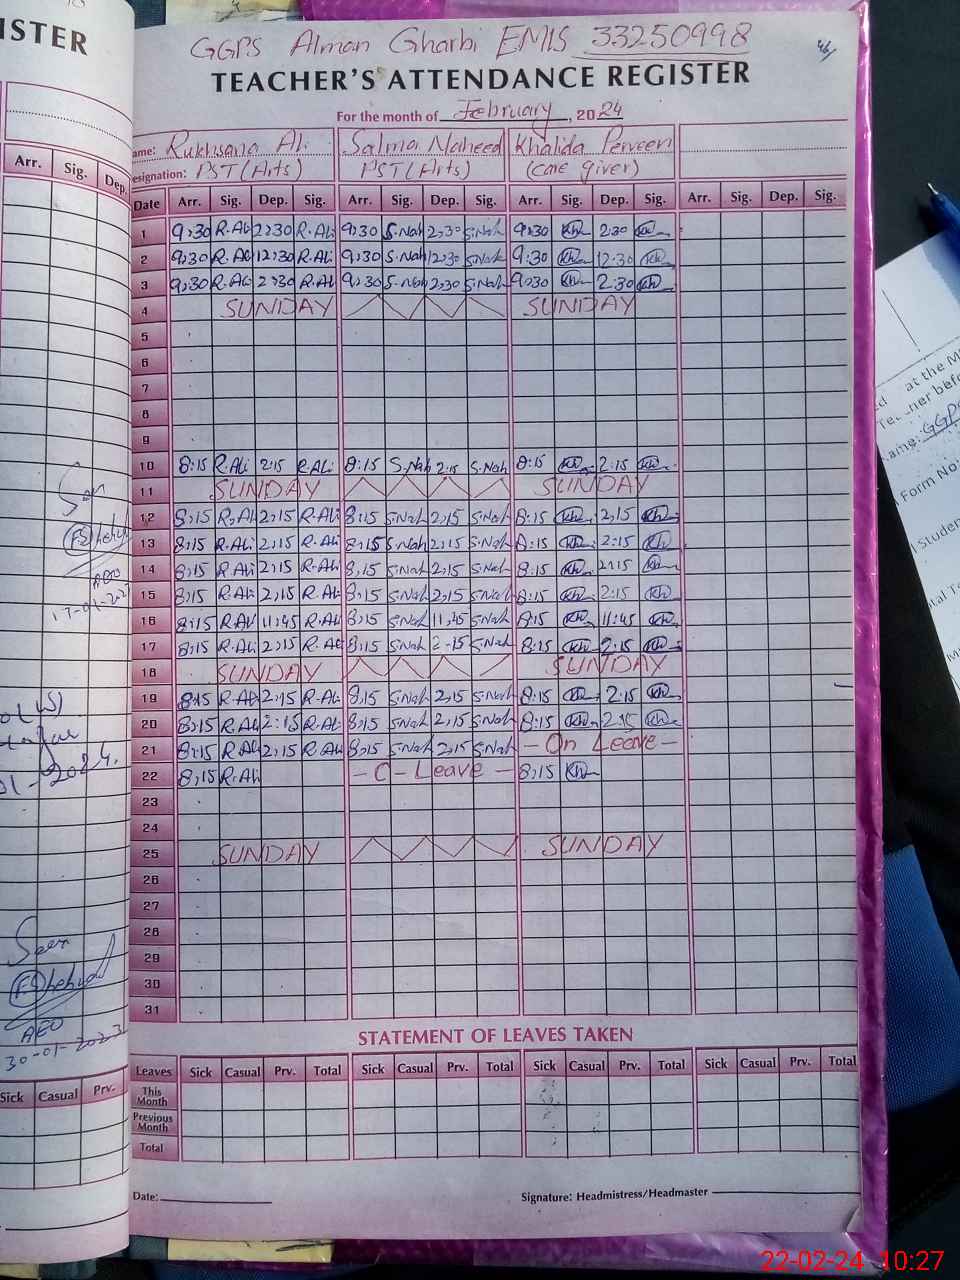 ISTER
GGPS Alman Gharbi EMIS 33250998
TEACHER'S ATTENDANCE REGISTER
For the month of February, 2024
ame: Rukhsana Ali Salma Naheed Khalida Perveen
esignation: PST (Arts) PST (Arts) (care giver)
Arr. Sig. Dep.
Date Arr. Sig. Dep. Sig. Arr. Sig. Dep. Sig. Arr. Sig. Dep. Sig. Arr. Sig. Dep. Sig.
1 9:30 R.Ali 2:30 R.Ali 9:30 S.Nah 2:30 S.Nah 9:30 2:30
2 9:30 R.Ali 12:30 R.Ali 9:30 S.Nah 12:30 S.Nah 9:30 12:30
3 9:30 R.Ali 2:30 R.Ali 9:30 S.Nah 2:30 S.Nah 9:30 2:30
4 SUNDAY SUNDAY
5
6
7
8
9
10 8:15 R.Ali 2:15 R.Ali 8:15 S.Nah 2:15 S.Nah 8:15 2:15
11 SUNDAY SUNDAY
12 8:15 R.Ali 2:15 R.Ali 8:15 S.Nah 2:15 S.Nah 8:15 2:15
13 8:15 R.Ali 2:15 R.Ali 8:15 S.Nah 2:15 S.Nah 8:15 2:15
14 8:15 R.Ali 2:15 R.Ali 8:15 S.Nah 2:15 S.Nah 8:15 2:15
15 8:15 R.Ali 2:15 R.Ali 8:15 S.Nah 2:15 S.Nah 8:15 2:15
16 8:15 R.Ali 11:45 R.Ali 8:15 S.Nah 11:45 S.Nah 8:15 11:45
17 8:15 R.Ali 2:15 R.Ali 8:15 S.Nah 2-15 S.Nah 8:15 2:15
18 SUNDAY SUNDAY
19 8:15 R.Ali 2:15 R.Ali 8:15 S.Nah 2:15 S.Nah 8:15 2:15
20 8:15 R.Ali 2:15 R.Ali 8:15 S.Nah 2:15 S.Nah 8:15 2:15
21 8:15 R.Ali 2:15 R.Ali 8:15 S.Nah 2:15 S.Nah - On Leave -
22 8:15 R.Ali - C - Leave - 8:15
23
24
25 SUNDAY SUNDAY
26
27
28
29
30
31
Seen
AEO
30-01-2023
STATEMENT OF LEAVES TAKEN
Leaves Sick Casual Prv. Total Sick Casual Prv. Total Sick Casual Prv. Total Sick Casual Prv. Total
This Month
Previous Month
Total
Sick Casual Prv.
Date: Signature: Headmistress/Headmaster
at the M
Form No
Studen
22-02-24 10:27